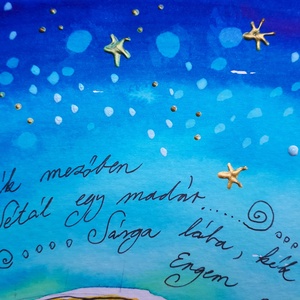 ék mezőben
Sétál egy madár......
Sárga lába, kék
Engem